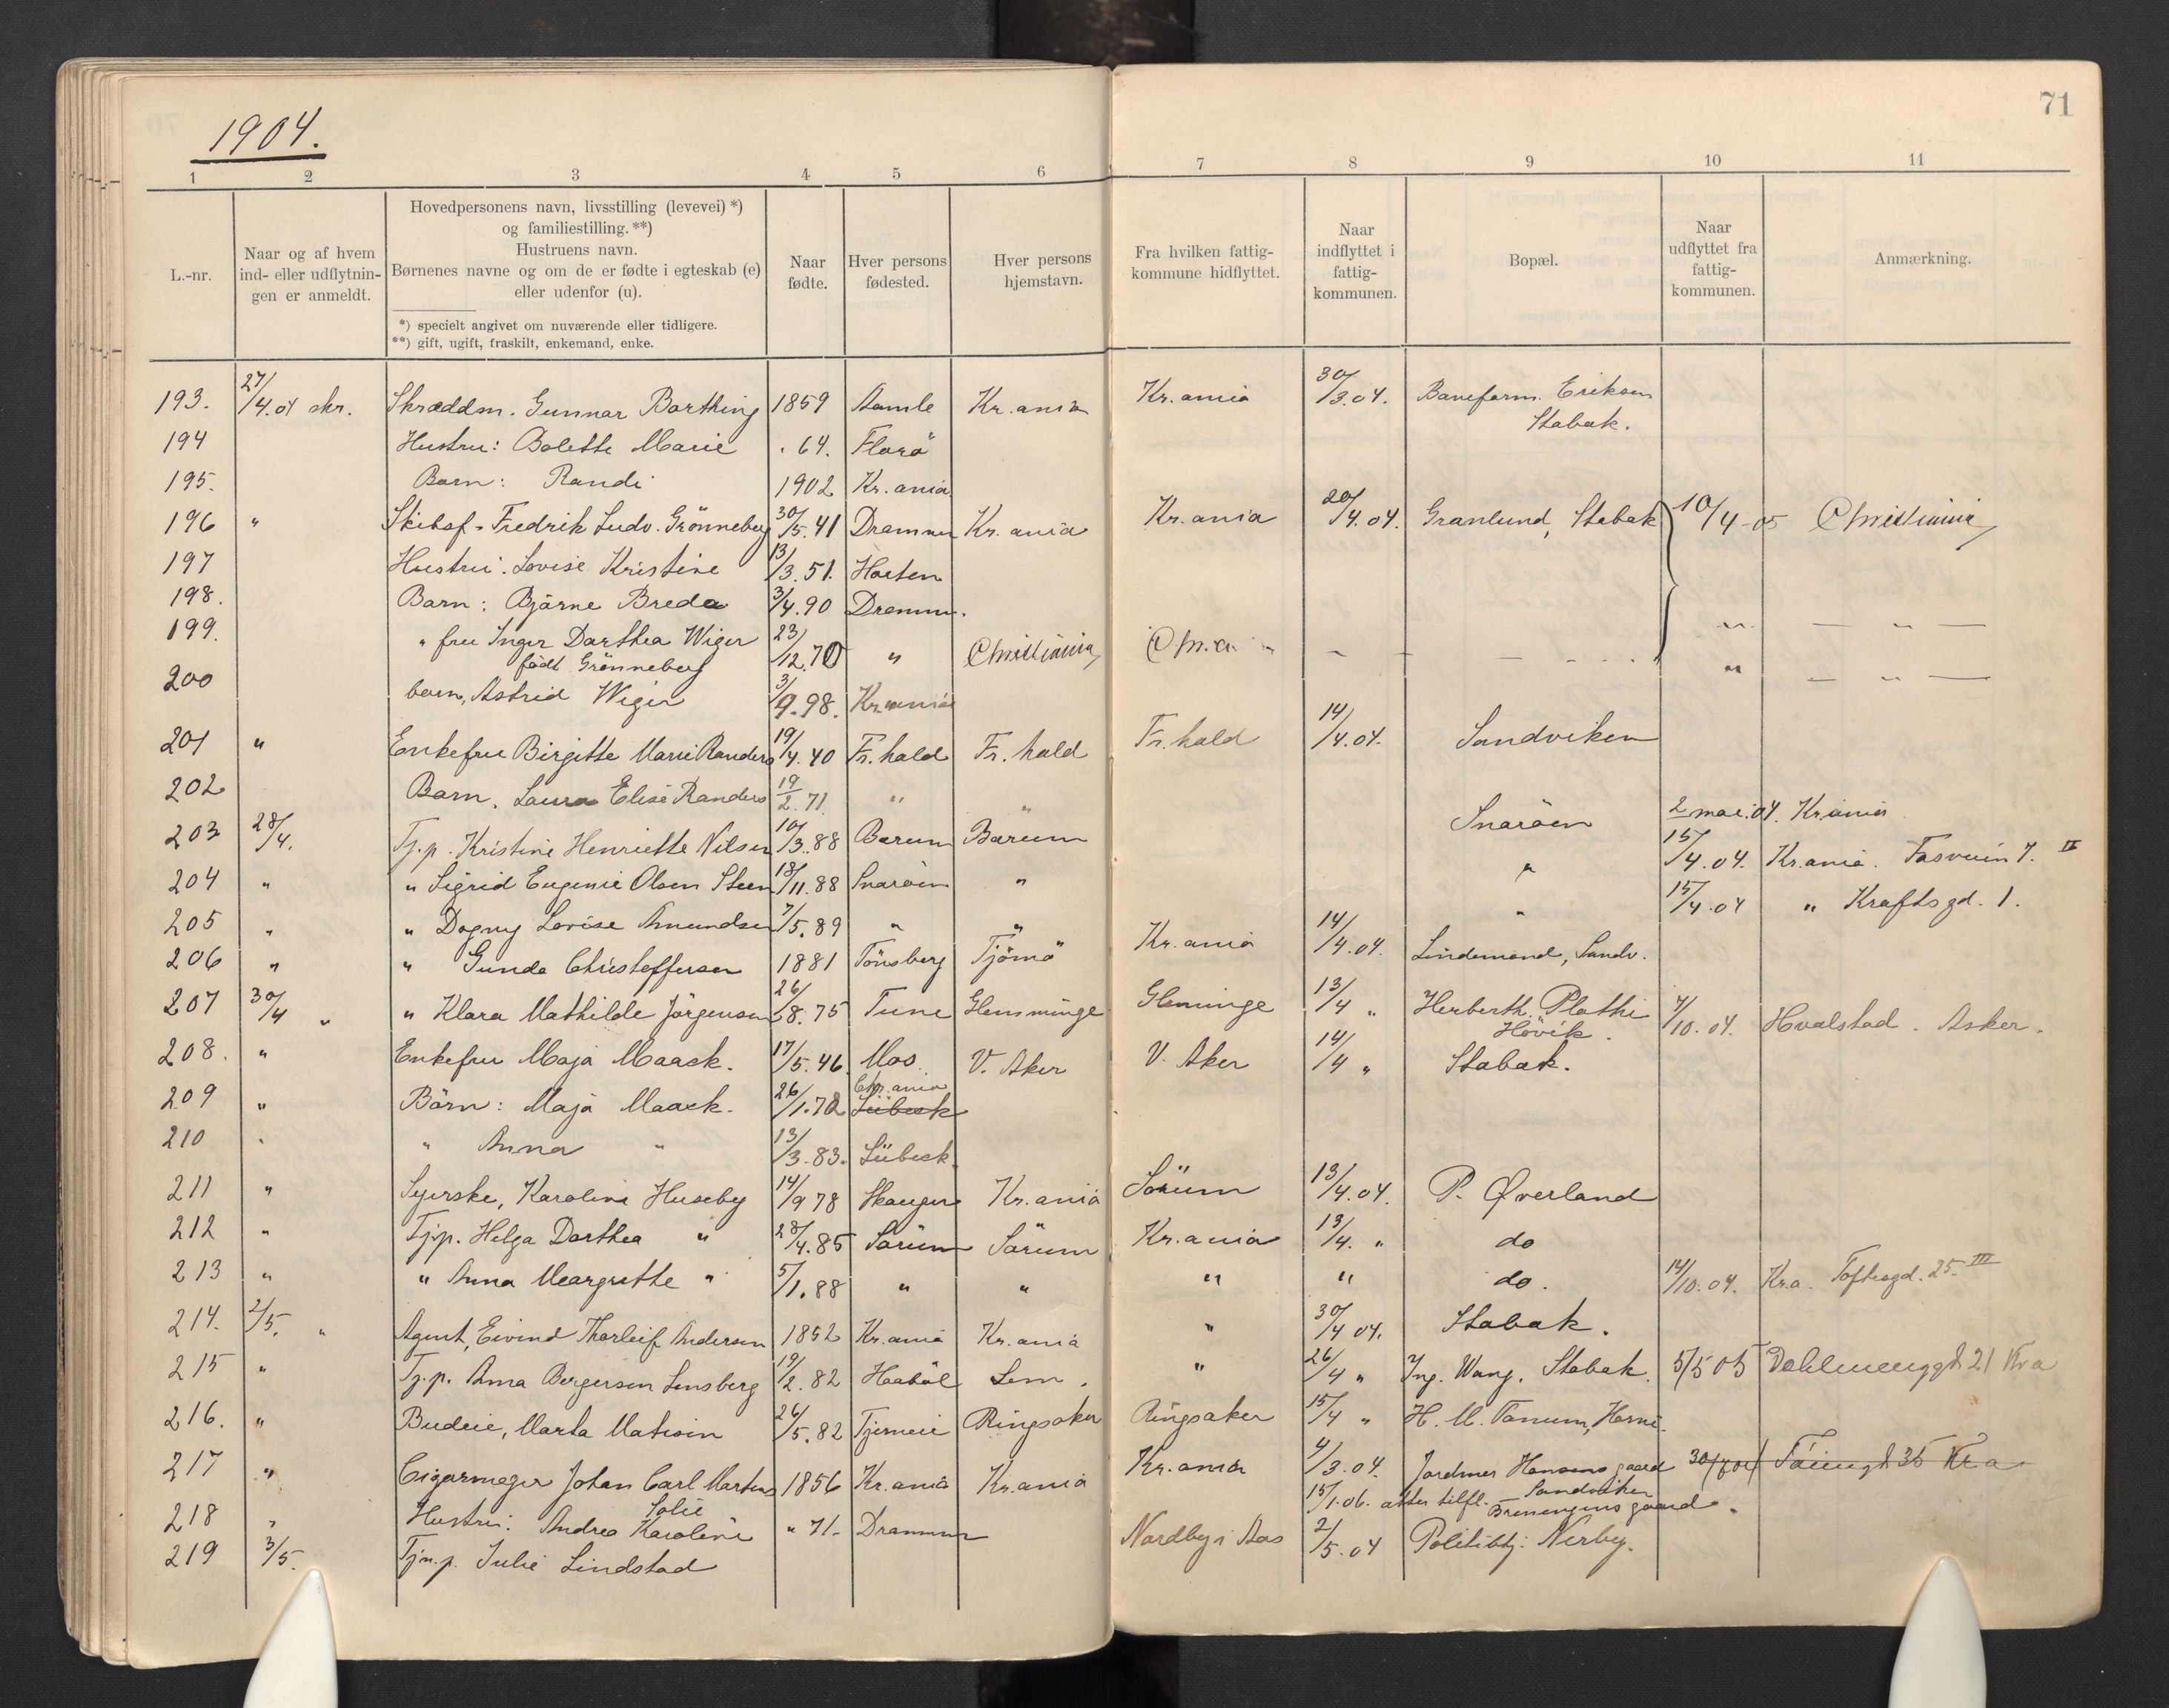 71
1904.
1 2 3 4 5 6 7 8 9 10 11
L.-nr.
Naar og af hvem ind- eller udflytnin-gen er anmeldt.
Hovedpersonens navn, livsstilling (levevei) *)
og familiestilling. **)
Hustruens navn.
Børnenes navne og om de er fødte i egteskab (e)
eller udenfor (u).
*) specielt angivet om nuværende eller tidligere.
**) gift, ugift, fraskilt, enkemand, enke.
Naar fødte.
Hver persons fødested.
Hver persons hjemstavn.
Fra hvilken fattig-kommune hidflyttet.
Naar indflyttet i fattig-kommunen.
Bopæl.
Naar udflyttet fra fattig-kommunen.
Anmærkning.
193. 27/4.04 skr. Skræddm. Gunnar Borthing 1859 Bamle Kr.ania Kr.ania 30/3.04. Baneform. Eriksen
Stabæk.
194 Hustru: Bolette Marie " 64. Florö
195. Barn: Randi 1902 Kr.ania
196 " Skibsf. Fredrik Ludv. Grönneberg 30/5.41 Drammen Kr.ania Kr.ania 20/4.04. Granlund, Stabæk 10/4-05 Christiania
197 Hustru. Lovise Kristine 13/3.51. Horten
198. Barn: Bjärne Breda 3/4.90 Dramm.
199. " fru Inger Dorthea Wiger 23/12.70 " Christiania Chr.a " " — " —
født Grönneberg
200 barn, Astrid Wiger 3/9.98. Kr.ania " — " —
201 " Enkefru Birgitte Marie Randers 19/4.40 Fr.hald Fr.hald Fr.hald 14/4.04. Sandviken
202 Barn. Laura Elise Randers 19/2.71 " "
203 28/4. Tj.p. Kristine Henriette Nilsen 10/3.88 Bærum Bærum Snaröen 2 mai.04. Kr.ania
204 " " Sigrid Eugenie Olsen Steen 18/11.88 Snaröen " " 15/4.04. Kr.ania. 7. II
205 " " Dagny Lovise Amundsen 7/5.89 " " " 15/4.04 " Kraftsgd. 1.
206 " " Gunda Christoffersen 1881 Tönsberg Tjömö Kr.ania 14/4.04. Lindemand, Sandv.
207 30/4 " " Klara Mathilde Jörgensen 26/8.75 Tune Glemminge Gleminge 13/4 " Herberth. Plathe 7/10.04. Hvalstad. Asker.
Hövik.
208. " Enkefru Maja Maack. 17/5.46 Mos. V. Aker V. Aker 14/4 " Stabæk.
209 " Börn: Maja Maack. 26/1.72 Chr.ania Lübeck
210 " " Anna " 13/3.83. Lübeck
211 " Syerske, Karoline Huseby 14/9 78 Skauger Kr.ania Sörum 13/4.04. P. Øverland
212 " Tj.p. Helga Dorthea " 28/4.85 Sörum Sörum Kr.ania 13/4. " do
213 " " Anna Margrethe " 5/1.88 " " " " do. 14/10.04. Kr.a. Toftesgd. 25 III
214. 2/5. " Agent, Eivind Thorleif Andersen 1852 Kr.ania Kr.ania " 30/4 04. Stabæk.
215 " Tj.p. Anna Bergersen Lensberg 19/2.82 Haaböl Lem. " 26/4 " Ing. Wang. Stabæk. 5/5 05 Dahlmenggt 21 Kra
216. " Budeie, Marta Matisen 26/5.82 Ringsaker Ringsaker 15/4 " H. M. Tanum,
217 " Cigarmager Johan Carl Martens 1856 Kr.ania Kr.ania Kr.ania 4/3.04. Jordmor Hansens gaard 35 Kr.a
Sandviken
218 " Hustru: Andrea Karoline Solie " 71- Drammen 15/1.06. atter tilfl. gaard.
219 3/5. Tjn.p. Julie Lindstad Nordby i Aas 2/5.04 Politibtj. Nerby.